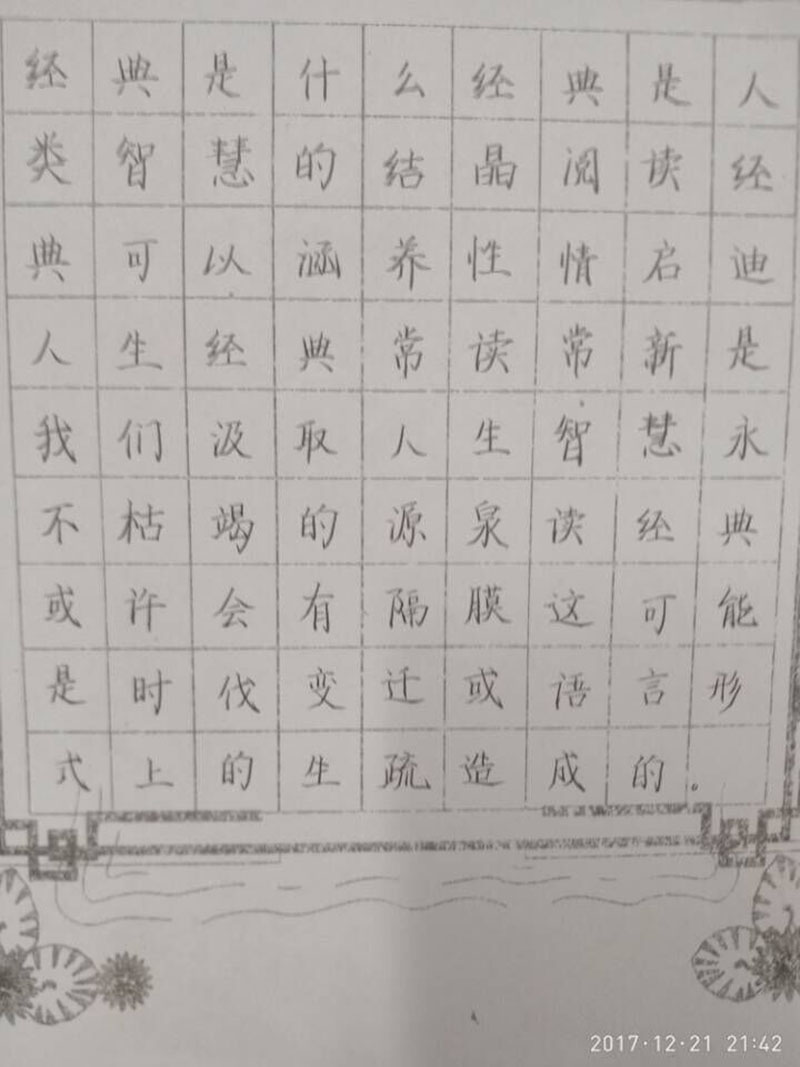 经典是什么经典是人
类智慧的结晶阅读经
典可以涵养性情启迪
人生经典常读常新是
我们汲取人生智慧永
不枯竭的源泉读经典
或许会有隔膜这可能
是时伐变迁或语言形
式上的生疏造成的。
2017·12·21 21:42